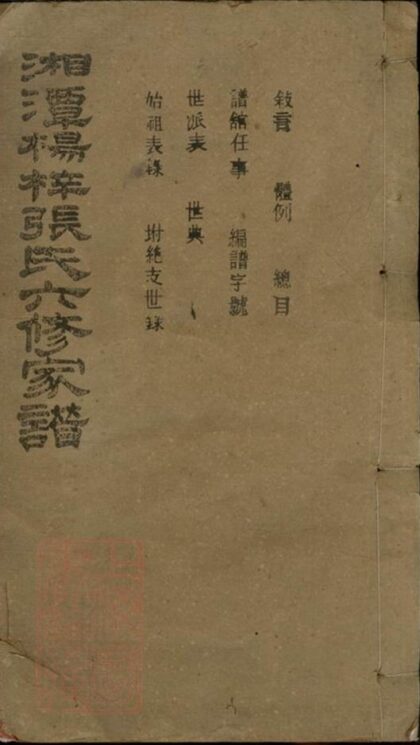 敘言 體例 總目
譜館任事 編譜字號
世派表 世典
始祖表錄 坿絶支世錄
湘潭楊梓張氏六修家譜